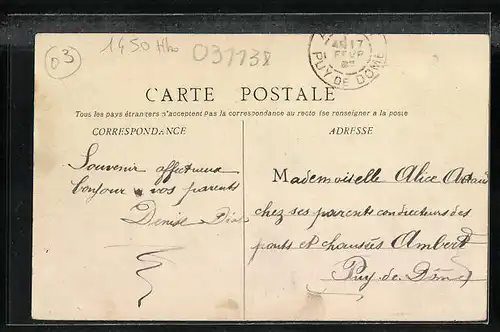 03
1450
031138
17
PUY DE DÔME
CARTE POSTALE
Tous les pays étrangers n'acceptent pas la correspondance au recto (se renseigner à la poste
CORRESPONDANCE
ADRESSE
Souvenir affectueux
bonjour a vos parents
Denise
Mademoiselle Alice
chez ses parents conducteurs des
ponts et chaussées Ambert
Puy-de-Dôme